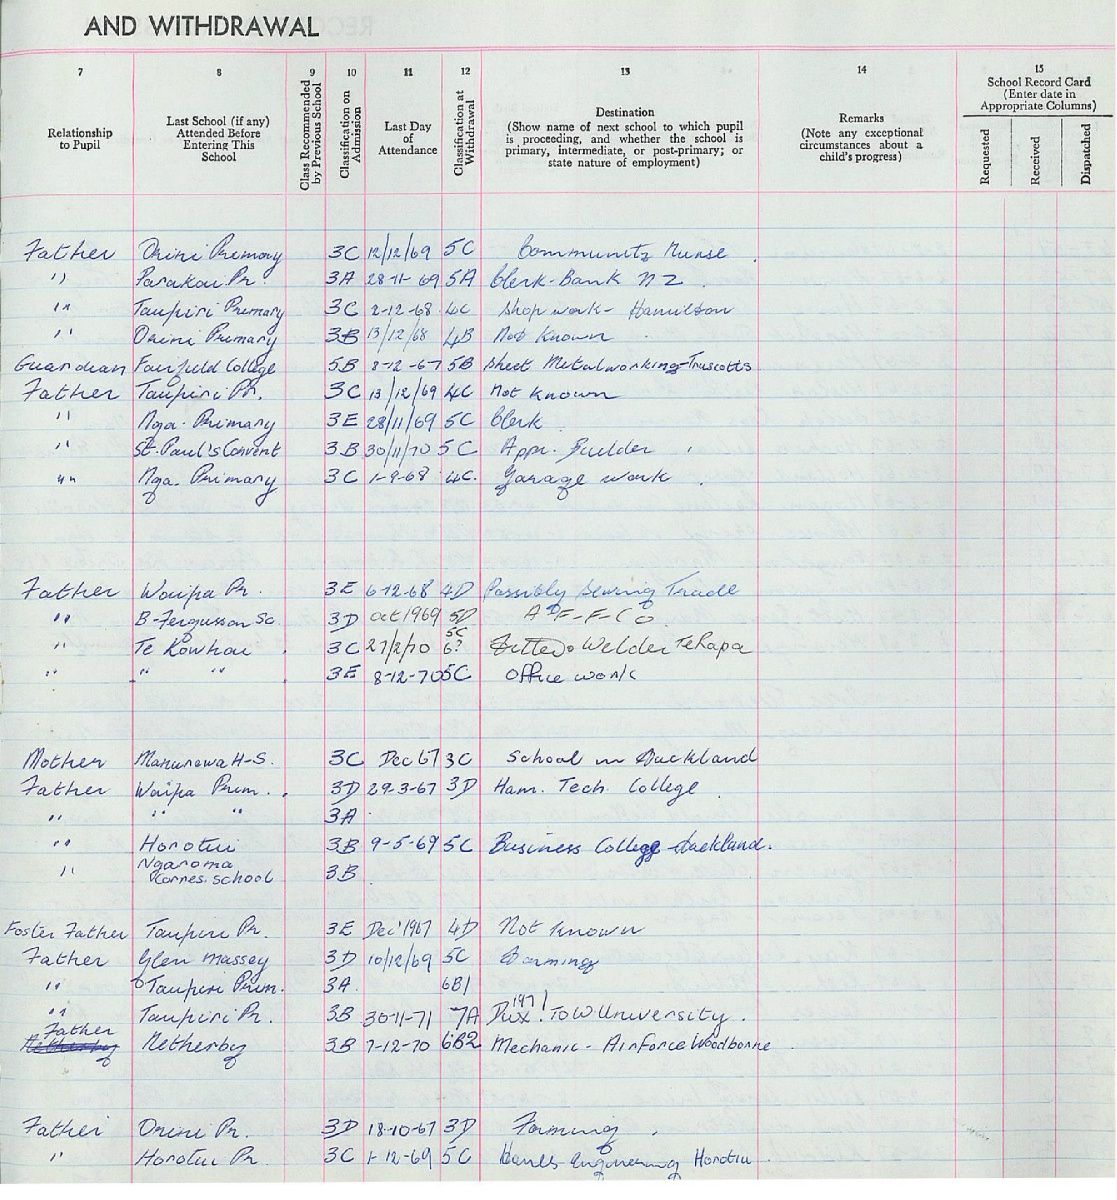 AND WITHDRAWAL
7 8 9 10 11 12 13 14 15
Relationship to Pupil
Last School (if any) Attended Before Entering This School
Class Recommended by Previous School
Classification on Admission
Last Day of Attendance
Classification at Withdrawal
Destination (Show name of next school to which pupil is proceeding, and whether the school is primary, intermediate, or post-primary; or state nature of employment)
Remarks (Note any exceptional circumstances about a child's progress)
School Record Card (Enter date in Appropriate Columns)
Requested Received Dispatched
Father Orini Primary 3C 12/12/69 5C Community Nurse
" Parakai Pr. 3A 28-11-69 5A Clerk-Bank NZ
" Taupiri Primary 3C 2-12-68 4C Shop work - Hamilton
" Orini Primary 3B 13/12/68 4B Not Known
Guardian Fairfield College 5B 8-12-67 5B Sheet Metalworking-Truscotts
Father Taupiri Pr. 3C 13/12/69 4C Not Known
" Nga. Primary 3E 28/11/69 5C Clerk
" St. Paul's Convent 3B 30/11/70 5C Appr. Builder
" Nga. Primary 3C 1-9-68 4C. Garage work
Father Waipa Pr. 3E 6-12-68 4D Possibly Sewing Trade
" B-Fergusson Sc. 3D Oct 1969 5D A-F-F-CO
" Te Kowhai 3C 27/2/70 5C 6? Welder TeRapa
" " " 3E 8-12-70 5C Office work
Mother Manurewa H-S. 3C Dec 67 3C School in Auckland
Father Waipa Prim. 3D 29-3-67 3D Ham. Tech. College
" " " 3A
" Horotiu 3B 9-5-69 5C Business College Auckland.
" Ngaroma Corres. School 3B
Foster Father Taupiri Pr. 3E Dec'1967 4D Not Known
Father Glen Massey 3D 10/12/69 5C Farming
" Taupiri Prim. 3A 6B1
" Taupiri Pr. 3B 30-11-71 7A Dux 1971! To W University.
Father Netherby 3B 7-12-70 6B2 Mechanic - Airforce Woodborne
Father Orini Pr. 3D 18-10-67 3D Farming
" Horotiu Pr. 3C 1-12-69 5C Engineering Horotiu